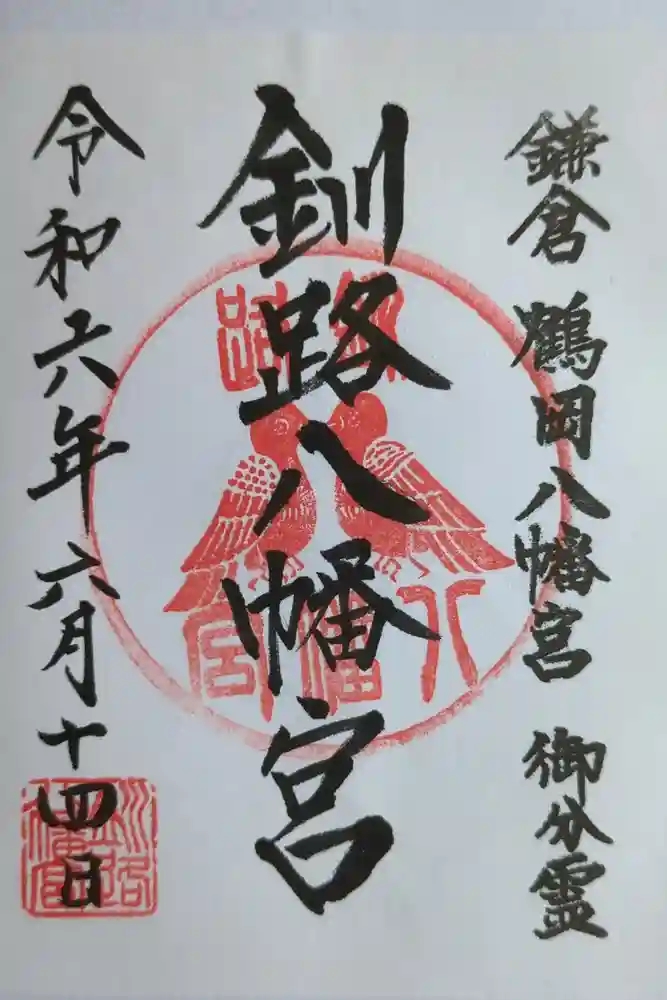 鎌倉 鶴岡八幡宮 御分霊
釧路八幡宮
令和六年六月十四日
釧路
八幡宮
釧路
八幡宮